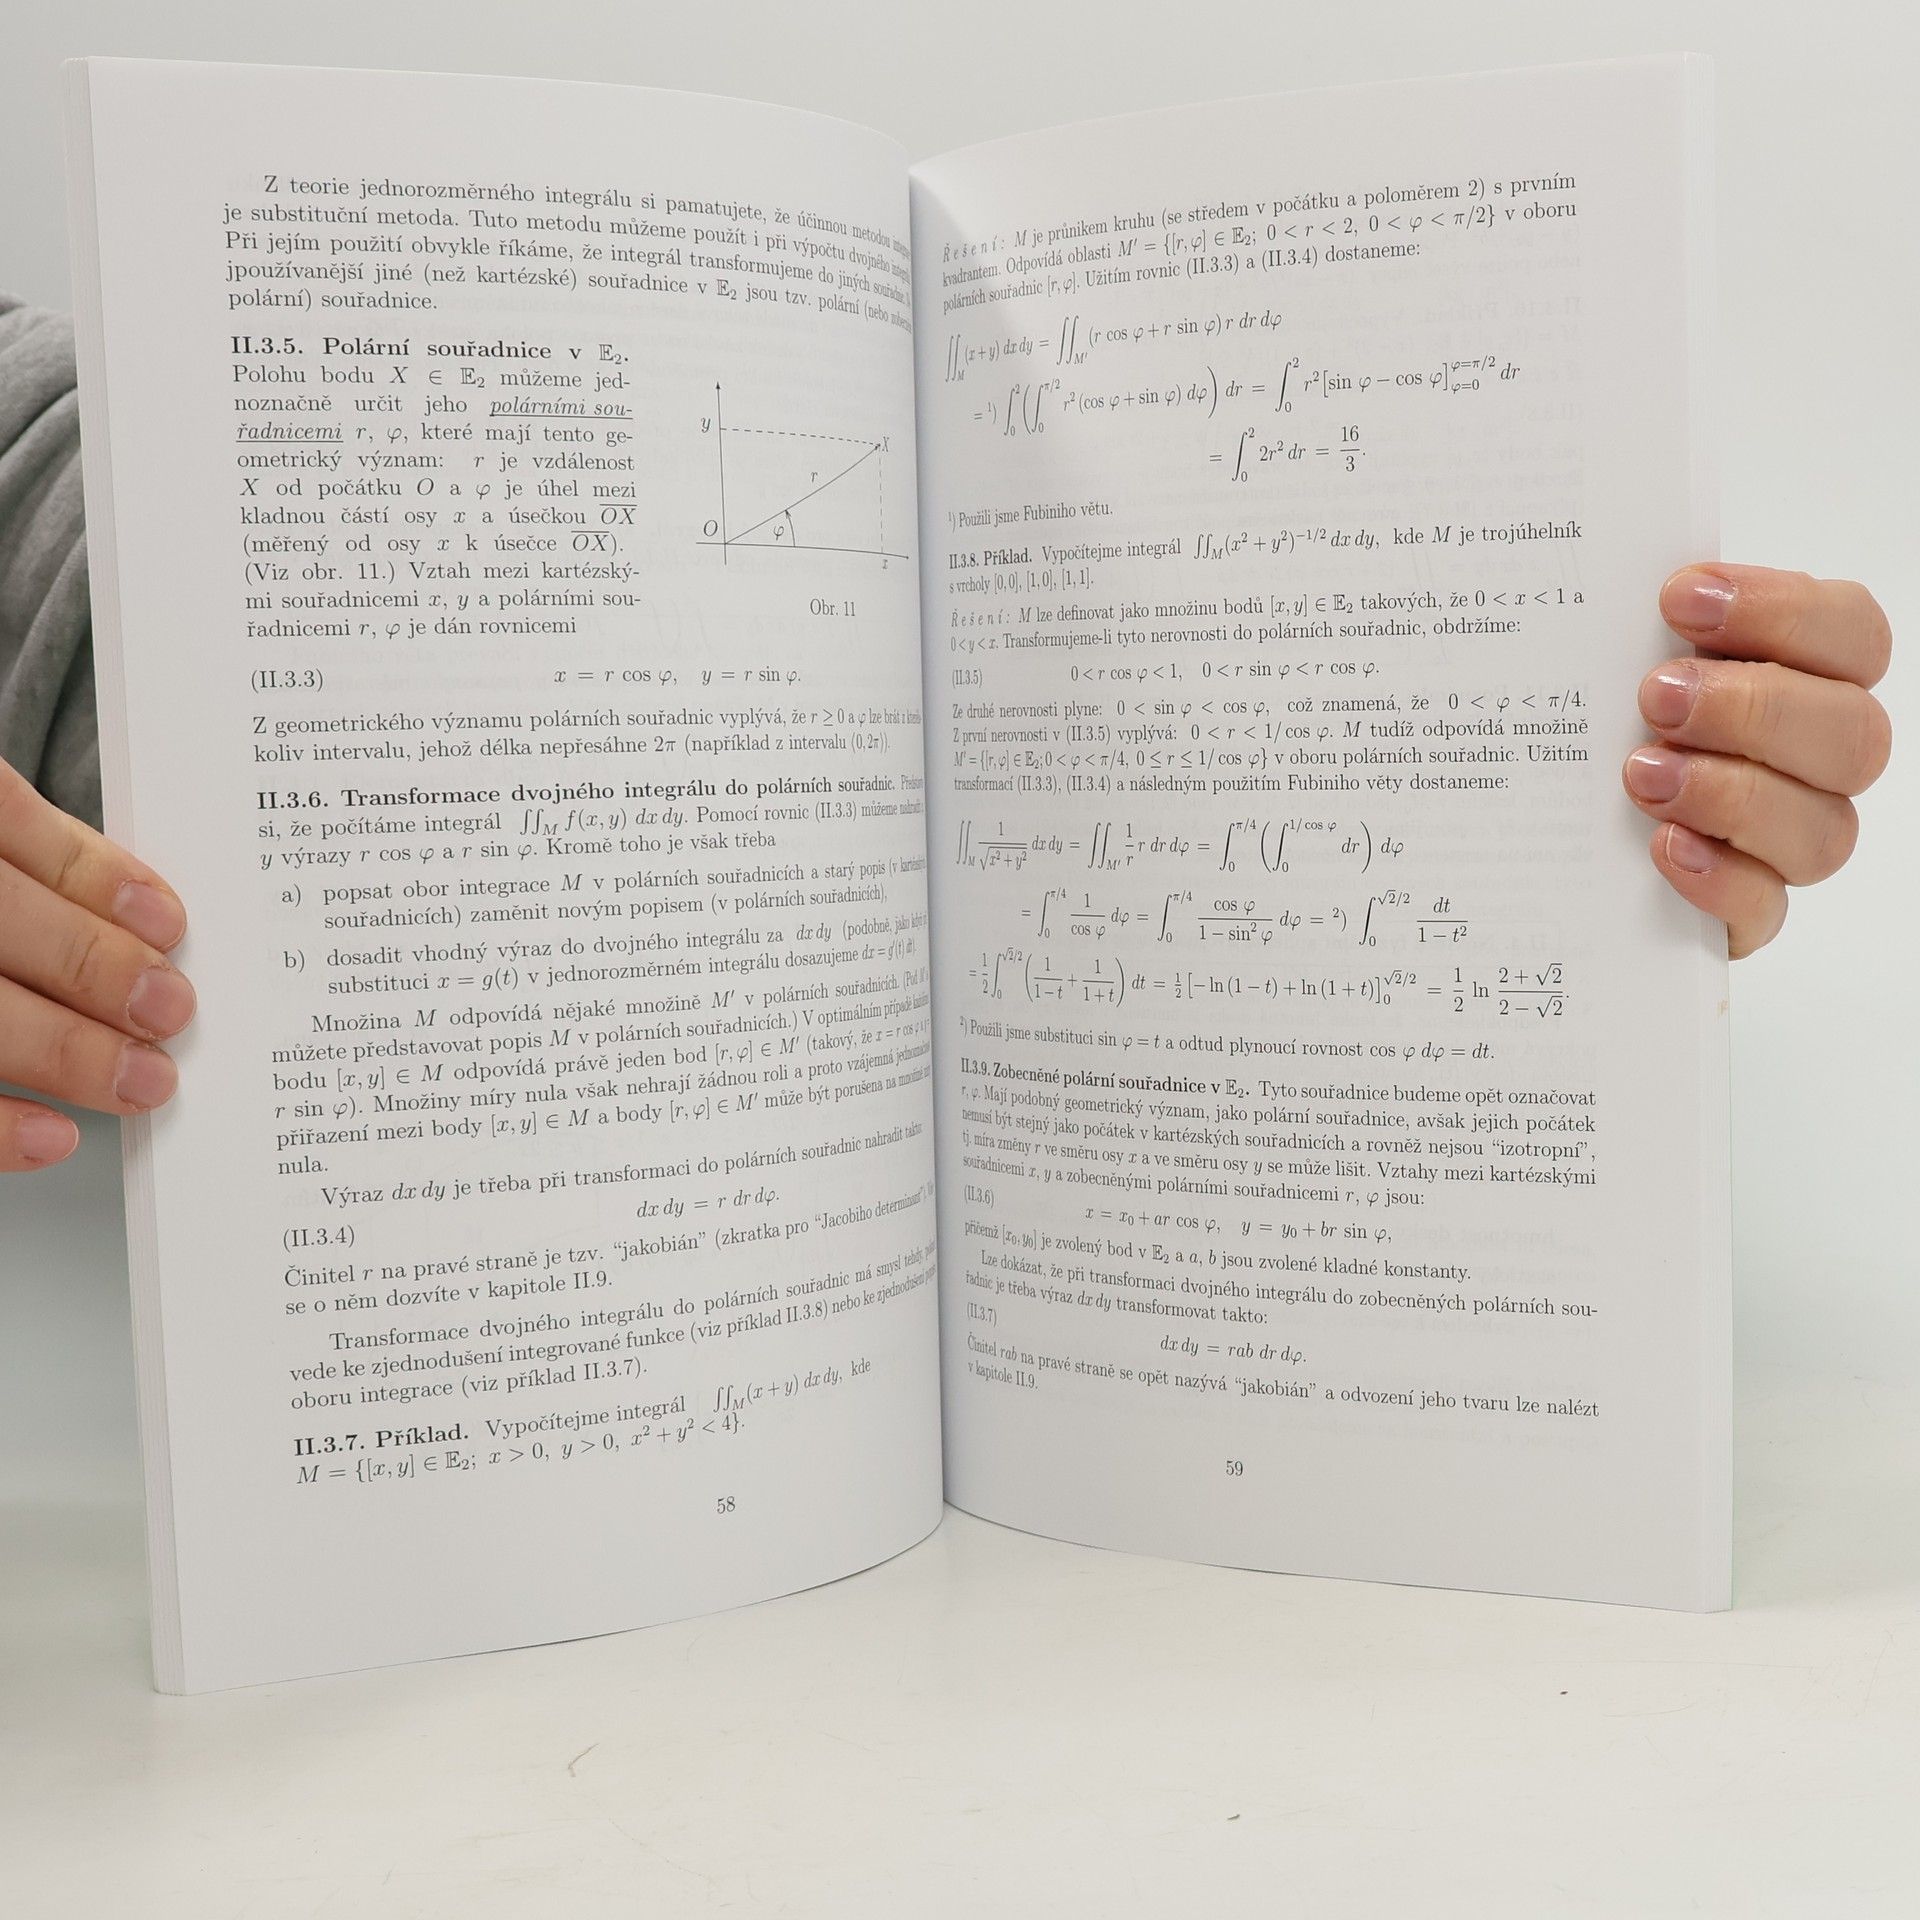 Z teorie jednorozměrného integrálu si pamatujete, že účinnou metodou
je substituční metoda. Tuto metodu můžeme použít i při výpočtu dvojného
Při jejím použití obvykle říkáme, že integrál transformujeme do jiných
jpoužívanější jiné (než kartézské) souřadnice v 𝔼₂ jsou tzv. polární (nebo
polární) souřadnice.
II.3.5. Polární souřadnice v 𝔼₂.
Polohu bodu X ∈ 𝔼₂ můžeme jed-
noznačně určit jeho polárními sou-
řadnicemi r, φ, které mají tento ge-
ometrický význam: r je vzdálenost
X od počátku O a φ je úhel mezi
kladnou částí osy x a úsečkou O̅X̅
(měřený od osy x k úsečce O̅X̅).
(Viz obr. 11.) Vztah mezi kartézský-
mi souřadnicemi x, y a polárními sou-
řadnicemi r, φ je dán rovnicemi
y
X
r
O
φ
x
Obr. 11
(II.3.3) x = r cos φ, y = r sin φ.
Z geometrického významu polárních souřadnic vyplývá, že r ≥ 0 a φ lze brát z
koliv intervalu, jehož délka nepřesáhne 2π (například z intervalu ⟨0, 2π⟩).
II.3.6. Transformace dvojného integrálu do polárních souřadnic.
si, že počítáme integrál ∬_M f(x, y) dx dy. Pomocí rovnic (II.3.3) můžeme
y výrazy r cos φ a r sin φ. Kromě toho je však třeba
a) popsat obor integrace M v polárních souřadnicích a starý popis (v
souřadnicích) zaměnit novým popisem (v polárních souřadnicích),
b) dosadit vhodný výraz do dvojného integrálu za dx dy (podobně, jako
substituci x = g(t) v jednorozměrném integrálu dosazujeme dx = g′(t) dt).
Množina M odpovídá nějaké množině M′ v polárních souřadnicích. (Pod M′
můžete představovat popis M v polárních souřadnicích.) V optimálním případě
bodu [x, y] ∈ M odpovídá právě jeden bod [r, φ] ∈ M′ (takový, že x = r cos φ
r sin φ). Množiny míry nula však nehrají žádnou roli a proto vzájemná
přiřazení mezi body [x, y] ∈ M a body [r, φ] ∈ M′ může být porušena na množině
nula.
Výraz dx dy je třeba při transformaci do polárních souřadnic nahradit takto:
(II.3.4) dx dy = r dr dφ.
Činitel r na pravé straně je tzv. “jakobián” (zkratka pro “Jacobiho determinant”).
se o něm dozvíte v kapitole II.9.
Transformace dvojného integrálu do polárních souřadnic má smysl tehdy,
vede ke zjednodušení integrované funkce (viz příklad II.3.8) nebo ke zjednodušení
oboru integrace (viz příklad II.3.7).
II.3.7. Příklad. Vypočítejme integrál ∬_M (x + y) dx dy, kde
M = {[x, y] ∈ 𝔼₂; x > 0, y > 0, x² + y² < 4}.
58
Řešení: M je průnikem kruhu (se středem v počátku a poloměrem 2) s prvním
kvadrantem. Odpovídá oblasti M′ = {[r, φ] ∈ 𝔼₂; 0 < r < 2, 0 < φ < π/2} v oboru
polárních souřadnic [r, φ]. Užitím rovnic (II.3.3) a (II.3.4) dostaneme:
∬_M (x + y) dx dy = ∬_M′ (r cos φ + r sin φ) r dr dφ
= ¹) ∫₀² (∫₀^{π/2} r² (cos φ + sin φ) dφ) dr = ∫₀² r² [sin φ − cos φ]_{φ=0}^{φ=π/2} dr
= ∫₀² 2r² dr = 16/3.
¹) Použili jsme Fubiniho větu.
II.3.8. Příklad. Vypočítejme integrál ∬_M (x² + y²)^{−1/2} dx dy, kde M je trojúhelník
s vrcholy [0, 0], [1, 0], [1, 1].
Řešení: M lze definovat jako množinu bodů [x, y] ∈ 𝔼₂ takových, že 0 < x < 1 a
0 < y < x. Transformujeme-li tyto nerovnosti do polárních souřadnic, obdržíme:
(II.3.5) 0 < r cos φ < 1, 0 < r sin φ < r cos φ.
Ze druhé nerovnosti plyne: 0 < sin φ < cos φ, což znamená, že 0 < φ < π/4.
Z první nerovnosti v (II.3.5) vyplývá: 0 < r < 1/cos φ. M tudíž odpovídá množině
M′ = {[r, φ] ∈ 𝔼₂; 0 < φ < π/4, 0 ≤ r ≤ 1/cos φ} v oboru polárních souřadnic. Užitím
transformací (II.3.3), (II.3.4) a následným použitím Fubiniho věty dostaneme:
∬_M 1/√(x² + y²) dx dy = ∬_M′ 1/r r dr dφ = ∫₀^{π/4} (∫₀^{1/cos φ} dr) dφ
= ∫₀^{π/4} 1/cos φ dφ = ∫₀^{π/4} cos φ/(1 − sin² φ) dφ = ²) ∫₀^{√2/2} dt/(1 − t²)
= 1/2 ∫₀^{√2/2} (1/(1−t) + 1/(1+t)) dt = ½ [−ln (1 − t) + ln (1 + t)]₀^{√2/2} = 1/2 ln (2 + √2)/(2 − √2).
²) Použili jsme substituci sin φ = t a odtud plynoucí rovnost cos φ dφ = dt.
II.3.9. Zobecněné polární souřadnice v 𝔼₂. Tyto souřadnice budeme opět označovat
r, φ. Mají podobný geometrický význam, jako polární souřadnice, avšak jejich počátek
nemusí být stejný jako počátek v kartézských souřadnicích a rovněž nejsou “izotropní”,
tj. míra změny r ve směru osy x a ve směru osy y se může lišit. Vztahy mezi kartézskými
souřadnicemi x, y a zobecněnými polárními souřadnicemi r, φ jsou:
(II.3.6) x = x₀ + ar cos φ, y = y₀ + br sin φ,
přičemž [x₀, y₀] je zvolený bod v 𝔼₂ a a, b jsou zvolené kladné konstanty.
Lze dokázat, že při transformaci dvojného integrálu do zobecněných polárních sou-
řadnic je třeba výraz dx dy transformovat takto:
(II.3.7) dx dy = rab dr dφ.
Činitel rab na pravé straně se opět nazývá “jakobián” a odvození jeho tvaru lze nalézt
v kapitole II.9.
59